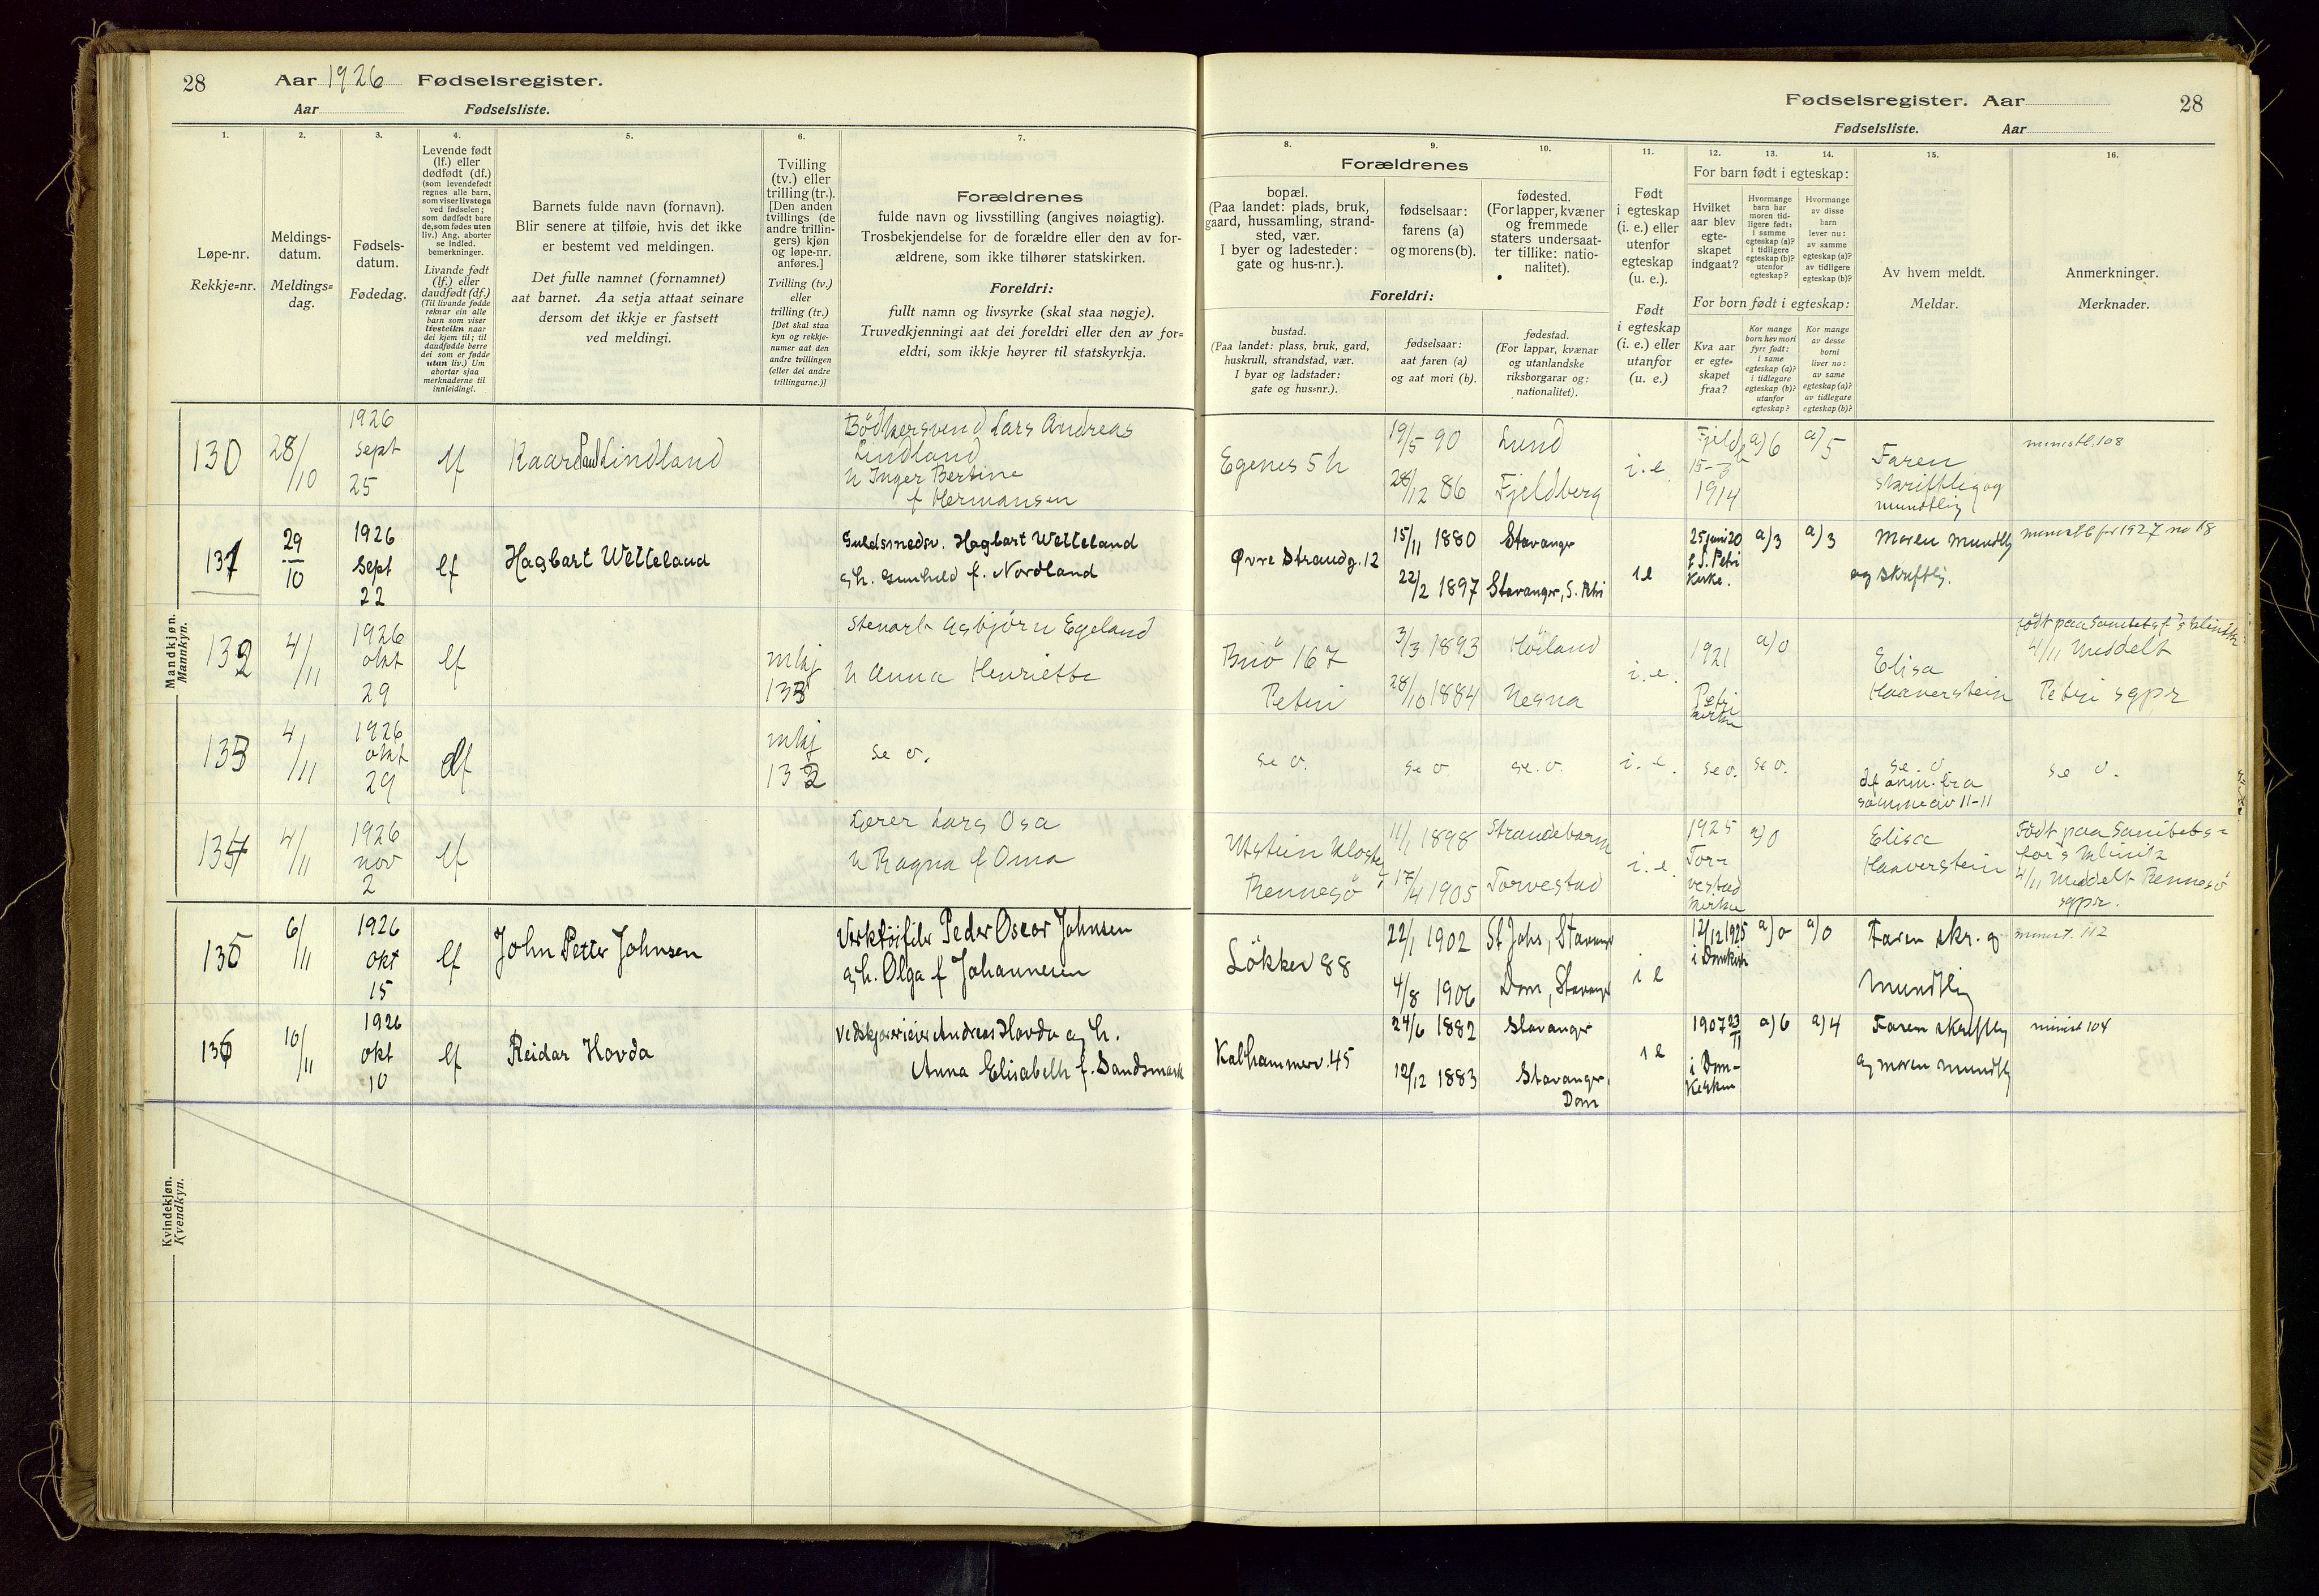 28 Aar 1926 Fødselsregister.
Aar Fødselsliste.
1.
Løpe-nr.
Rekkje=nr.
2.
Meldings-
datum.
Meldings=
dag.
3.
Fødsels-
datum.
Fødedag.
4.
Levende født
(lf.) eller
dødfødt (df.)
(som levendefødt
regnes alle barn,
som viser livstegn
ved fødselen;
som dødfødt bare
de, som fødes uten
liv.) Ang. aborter
se indled.
bemerkninger.
Livande født
(lf.) eller
daudfødt (df.)
(Til livande fødde
reknar ein alle
barn som viser
livsteikn naar
dei kjem til; til
daudfødde berre
dei som er fødde
utan liv.) Um
abortar sjaa
merknaderne til
innleidingi.
5.
Barnets fulde navn (fornavn).
Blir senere at tilføie, hvis det ikke
er bestemt ved meldingen.
Det fulle namnet (fornamnet)
aat barnet. Aa setja attaat seinare
dersom det ikkje er fastsett
ved meldingi.
6.
Tvilling
(tv.) eller
trilling (tr.).
[Den anden
tvillings (de
andre trillin-
gers) kjøn
og løpe-nr.
anføres.]
Tvilling (tv.)
eller
trilling (tr.)
[Det skal staa
kyn og rekkje-
numer aat den
andre tvillingen
(eller dei andre
trillingarne.)]
7.
Forældrenes
fulde navn og livsstilling (angives nøiagtig).
Trosbekjendelse for de forældre eller den av for-
ældrene, som ikke tilhører statskirken.
Foreldri:
fullt namn og livsyrke (skal staa nøgje).
Truvedkjenningi aat dei foreldri eller den av for=
eldri, som ikkje høyrer til statskyrkja.
Mandkjøn.
Mannkyn.
130 28/10 1926 sept 25 lf Kaare Paul Lindland
Bødkersvend Lars Andreas
Lindland
h Inger Bertine
f Hermansen
131 29/10 1926 sept 22 lf Hagbart Wetteland
Guldsmedsv. Hagbart Wetteland
og h. Gunhild f. Nordland
132 4/11 1926 okt 29 lf mkj 133
Stenarb Asbjørn Egeland
h Anna Henriette
133 4/11 1926 okt 29 df mkj 132 se o.
134 4/11 1926 nov 2 lf
Lærer Lars Osa
h Ragna f Oma
135 6/11 1926 okt 15 lf John Petter Johnsen
Verktøifiler Peder Oscar Johnsen
og h. Olga f Johannesen
136 10/11 1926 okt 10 lf Reidar Hovda
Vedskjæreieier Andreas Hovda og h.
Anna Elisabeth f. Sandsmark
Kvindekjøn.
Kvendkyn.
Fødselsregister. Aar 28
Fødselsliste. Aar
8.
Forældrenes
bopæl.
(Paa landet: plads, bruk,
gaard, hussamling, strand-
sted, vær.
I byer og ladesteder:
gate og hus-nr.).
Foreldri:
bustad.
(Paa landet: plass, bruk, gard,
huskrull, strandstad, vær.
I byar og ladstader:
gate og hus=nr.).
9.
fødselsaar:
farens (a)
og morens (b).
fødselsaar:
aat faren (a)
og aat mori (b).
10.
fødested.
(For lapper, kvæner
og fremmede
staters undersaat-
ter tillike: natio-
nalitet).
fødestad.
(For lappar, kvænar
og utanlandske
riksborgarar og:
nationalitet).
11.
Født
i egteskap
(i. e.) eller
utenfor
egteskap
(u. e.).
Født
i egteskap
(i. e.) eller
utanfor
(u. e.)
12. 13. 14.
For barn født i egteskap:
Hvilket
aar blev
egte-
skapet
indgaat?
Hvormange
barn har
moren tid-
ligere født:
i samme
egteskap (a)?
i tidligere
egteskap (b)?
utenfor
egteskap?
Hvormange
av disse
barn
lever nu:
av samme
egteskap (a)?
av tidligere
egteskap (b)?
For born født i egteskap:
Kva aar
er egte=
skapet
fraa?
Kor mange
born hev mori
fyrr født:
i same
egteskap (a)?
i tidlegare
egteskap (b)?
utanfor
egteskap?
Kor mange
av desse
borni
liver no:
av same
egteskap (a)?
av tidlegare
egteskap (b)?
15.
Av hvem meldt.
Meldar.
16.
Anmerkninger.
Merknader.
Egenes 5 h
19/5 90 Lund
28/12 86 Fjeldberg
i. e.
15-
1914
a) 6 a) 5
Faren
skriftlig og
mundtlig
ministl. 108
Øvre Strandg. 12
15/11 1880 Stavanger
22/2 1897 Stavanger, S. Petri
i e
25 juni 20
f S. Petri
Kirke.
a) 3 a) 3
Moren mundtlig
og skriftlig.
ministl for 1927 no 18
Buø 167
Petri
3/3 1893 Høiland
28/10 1884 Nesna
i. e.
1921
Petri
kirke
a) 0
Elisa
Haaverstein
født paa Sanitetsf's klinikk
4/11 Meddelt
Petri sgpr
se o. se o se. o. i. e. se o. se o.
se. o
df anm. fra
samme av 11-11
se o.
Utstein Kloster
Rennesø
11/1 1898 Strandebarm
17/4 1905 Torvestad
i. e.
1925
Tor-
vestad
kirke
a) 0
Elisa
Haaverstein
Født paa Sanitets=
for's klinik
4/11 Meddelt Rennesø
sgpr.
Løkkev 88
22/1 1902 St Johs, Stavanger
4/8 1906 Dom, Stavanger
i e
12/12 1925
i Domkirk
a) 0 a) 0
Faren skr. og
mundtlig
minist. 112
Kalhammerv. 45
24/6 1882 Stavanger
12/12 1883 Stavanger,
Dom
i e
1907 23/11
i Dom-
kirken
a) 6 a) 4
Faren skriftlig
og moren mundtlig
minist 104